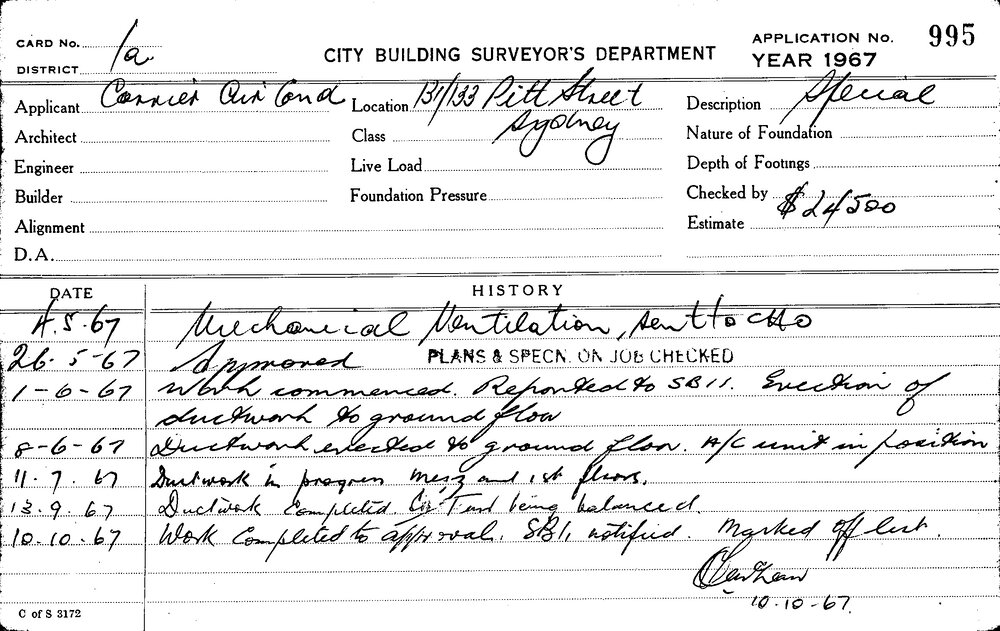 CARD No. 1a
CITY BUILDING SURVEYOR'S DEPARTMENT
APPLICATION No. 995
DISTRICT
YEAR 1967
Applicant Carrier Air Cond
Location 131/133 Pitt Street
Sydney
Description Special
Architect
Class
Nature of Foundation
Engineer
Live Load
Depth of Footings
Builder
Foundation Pressure
Checked by
Alignment
Estimate $24500
D.A.
DATE HISTORY
4.5.67 Mechanical Ventilation, sent to CHO
26-5-67 Approved PLANS & SPECN. ON JOB CHECKED
1-6-67 Work commenced. Reported to SB11. Erection of
ductwork to ground floor
8-6-67 Ductwork erected to ground floor. A/C unit in position
11.7.67 Ductwork in progress mezz and 1st floors.
13.9.67 Ductwork completed. being balanced.
10.10.67 Work completed to approval. SB1, notified. Marked off list.
10-10-67.
C of S 3172